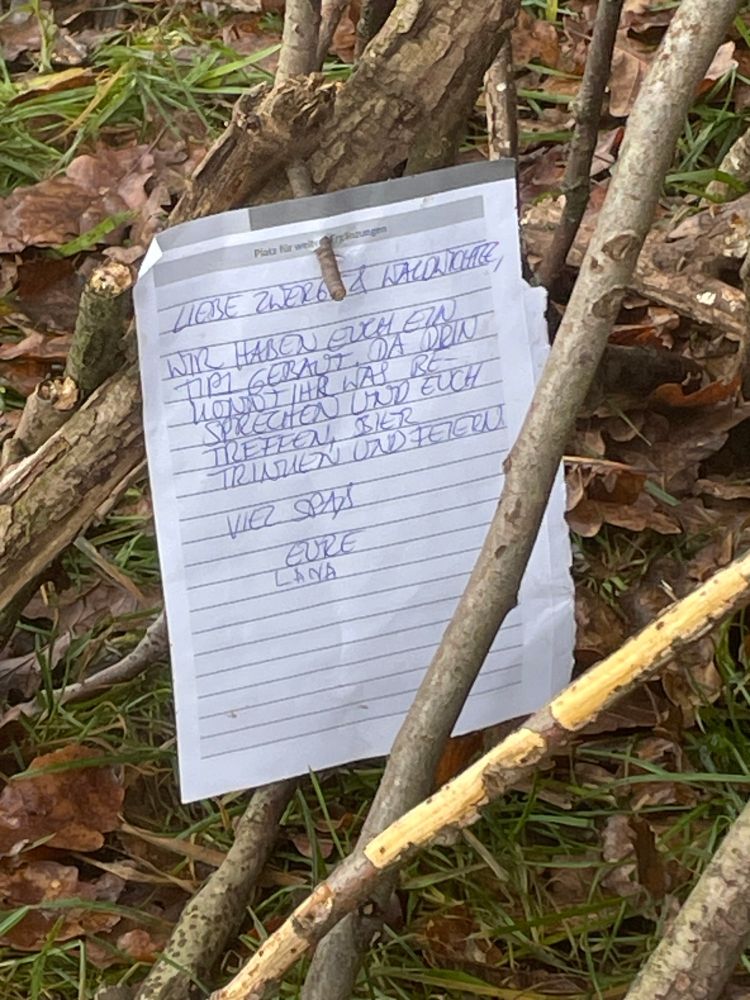 Platz für weitere Ergänzungen
LIEBE ZWERGE & WALDWICHTEL,
WIR HABEN EUCH EIN
TIPI GEBAUT DA DRIN
KÖNNT IHR WAS BE-
SPRECHEN UND EUCH
TREFFEN, BIER
TRINKEN UND FEIERN!
VIEL SPAß
EURE
LANA